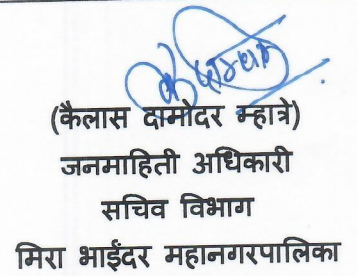 (कैलास दामोदर म्हात्रे)
जनमाहिती अधिकारी
सचिव विभाग
मिरा भाईंदर महानगरपालिका